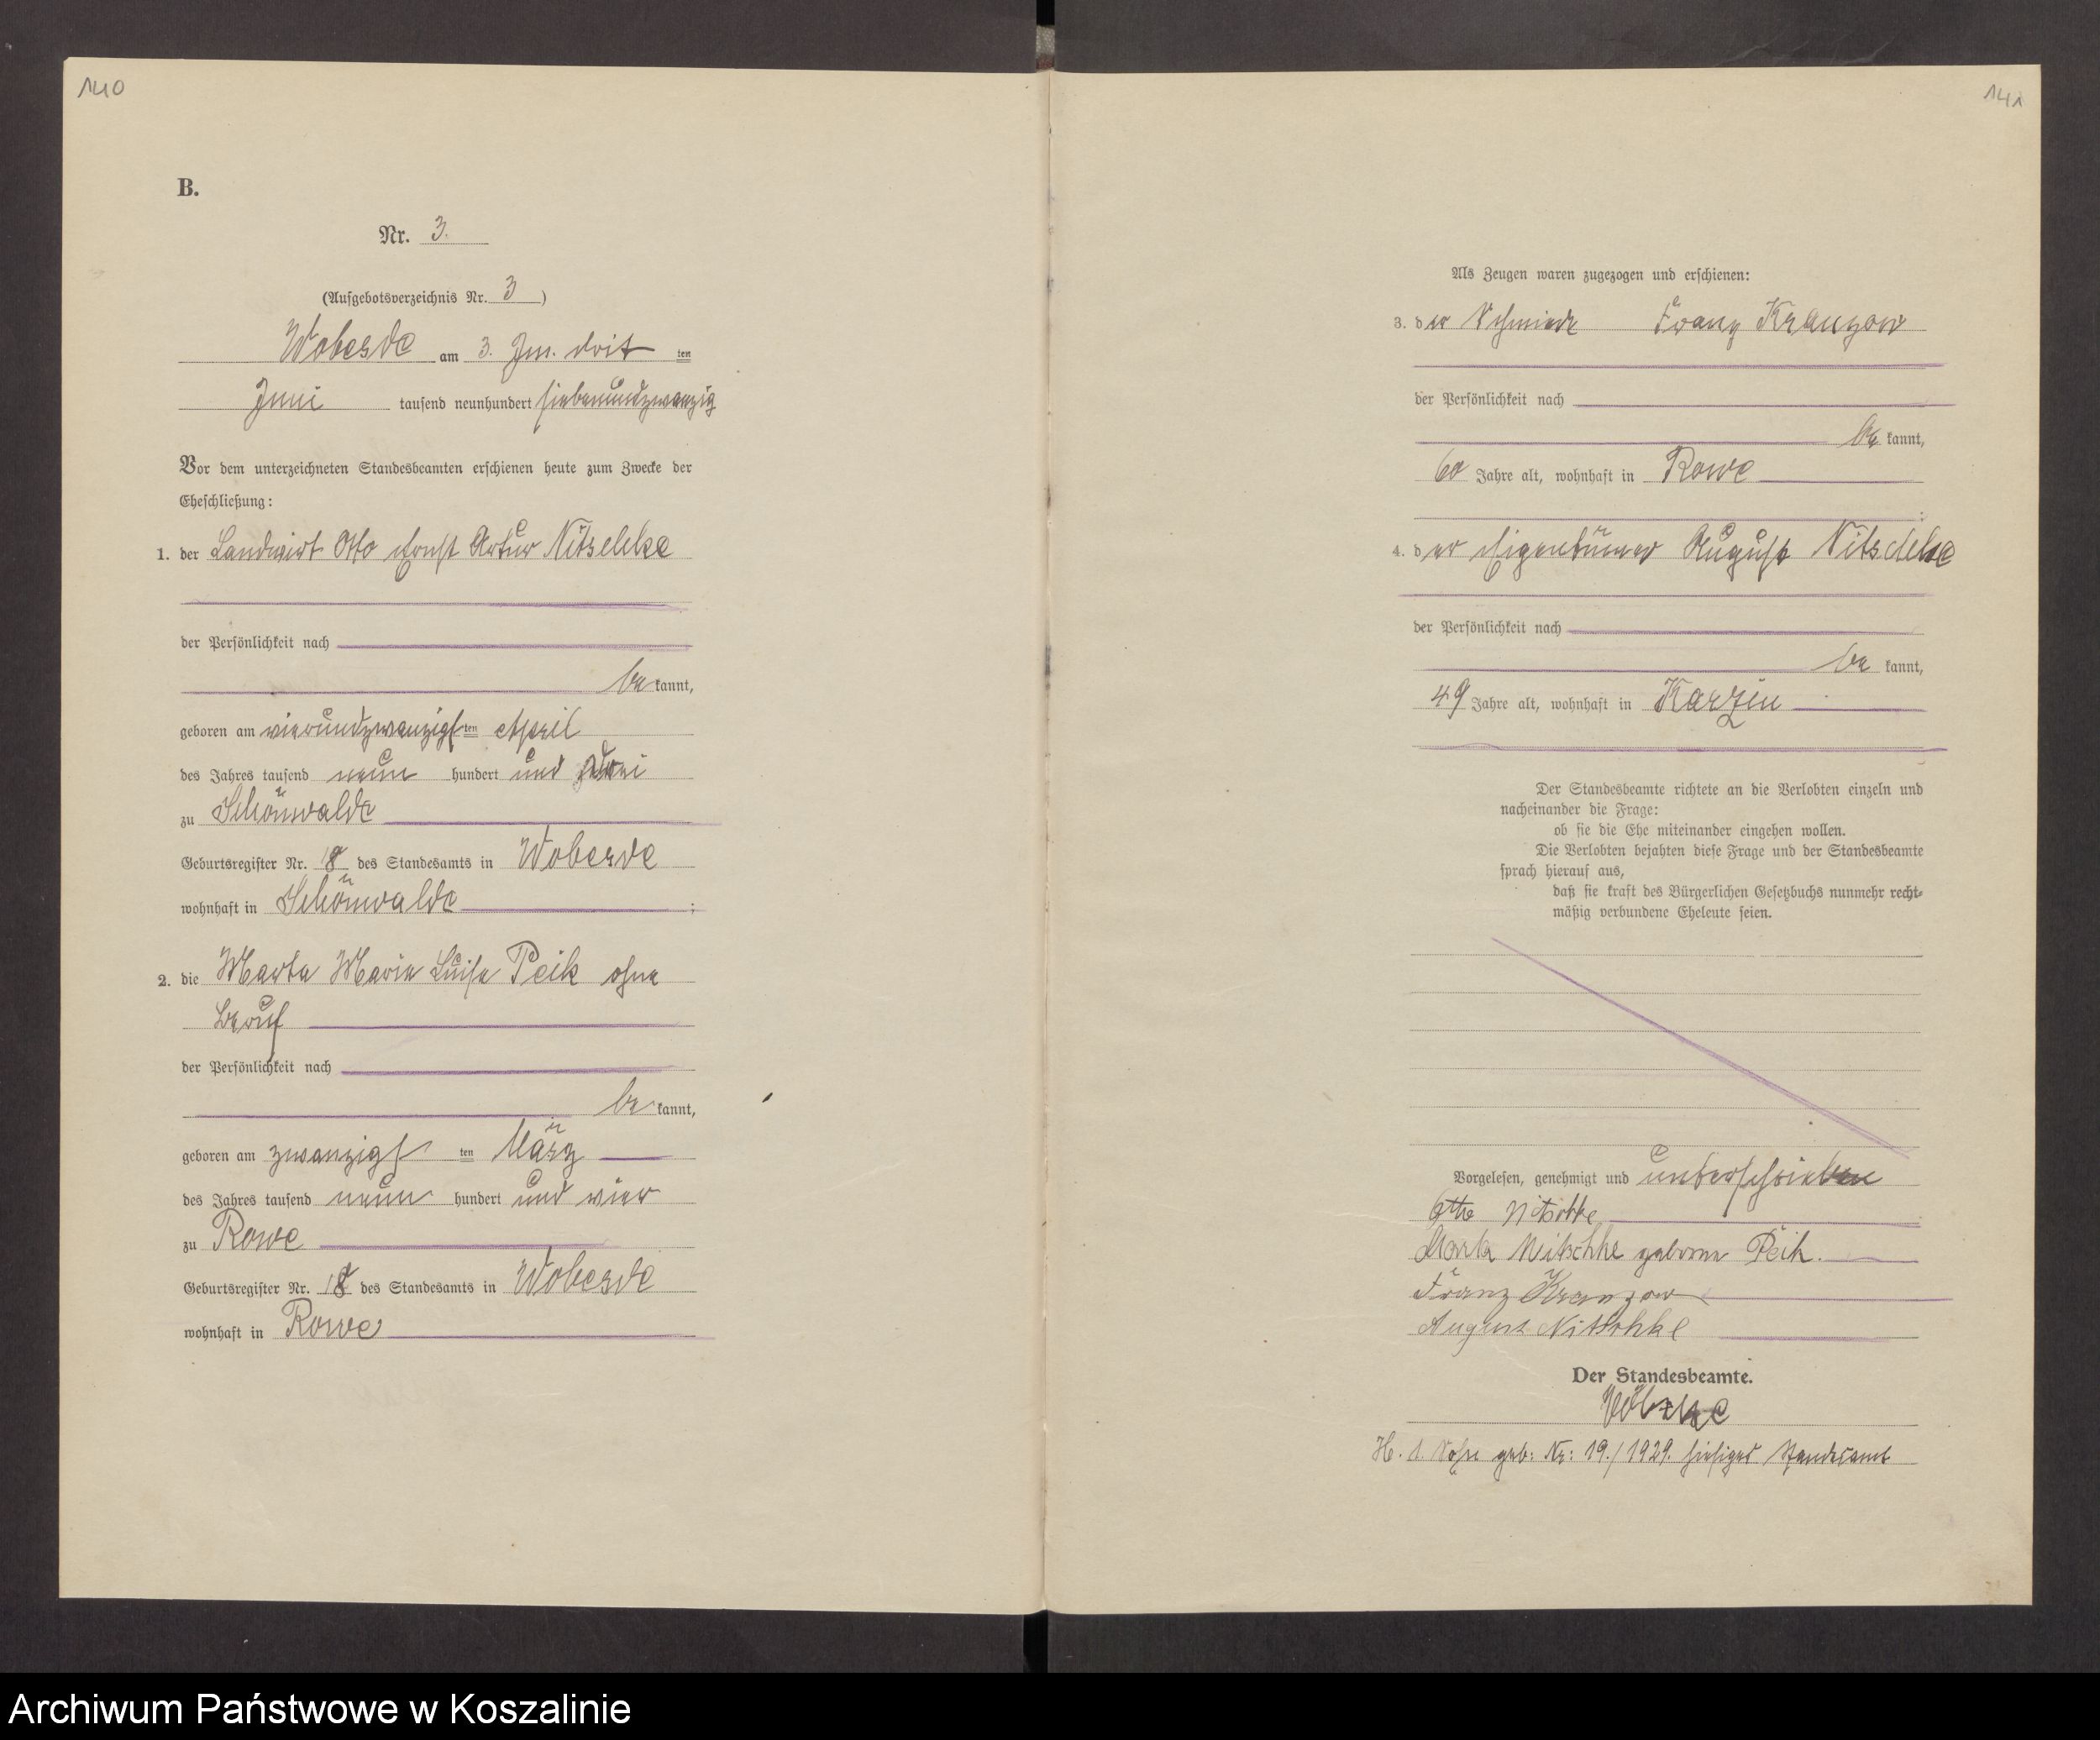 140
B.
Nr. 3.
(Aufgebotsverzeichnis Nr. 3)
Wobesde am 3. Jun. drit ten
Juni tausend neunhundert siebenundzwanzig
Vor dem unterzeichneten Standesbeamten erschienen heute zum Zwecke der
Eheschließung:
1. der Landwirt Otto Ernst Artur Nitschke
der Persönlichkeit nach
be kannt,
geboren am vierundzwanzigsten April
des Jahres tausend neun hundert und
zu Schönwalde
Geburtsregister Nr. 18 des Standesamts in Wobesde
wohnhaft in Schönwalde ;
2. die Marta Marie Luise Peik ohne
Beruf
der Persönlichkeit nach
be kannt,
geboren am zwanzigsten März
des Jahres tausend neun hundert und vier
zu Rowe
Geburtsregister Nr. 18 des Standesamts in Wobesde
wohnhaft in Rowe
141
Als Zeugen waren zugezogen und erschienen:
3. der Schmied Franz Kranzow
der Persönlichkeit nach
be kannt,
60 Jahre alt, wohnhaft in Rowe
;
4. der Eigentümer August Nitschke
der Persönlichkeit nach
be kannt,
49 Jahre alt, wohnhaft in Karzin
Der Standesbeamte richtete an die Verlobten einzeln und
nacheinander die Frage:
ob sie die Ehe miteinander eingehen wollen.
Die Verlobten bejahten diese Frage und der Standesbeamte
sprach hierauf aus,
daß sie kraft des Bürgerlichen Gesetzbuchs nunmehr recht-
mäßig verbundene Eheleute seien.
Vorgelesen, genehmigt und unterschrieben
Otto Nitschke
Marta Nitschke geborne Peik.
Franz Kranzow
August Nitschke
Der Standesbeamte.
H. 1. Sohn geb: Nr: 19./1929. hiesiges Standesamt
Archiwum Państwowe w Koszalinie